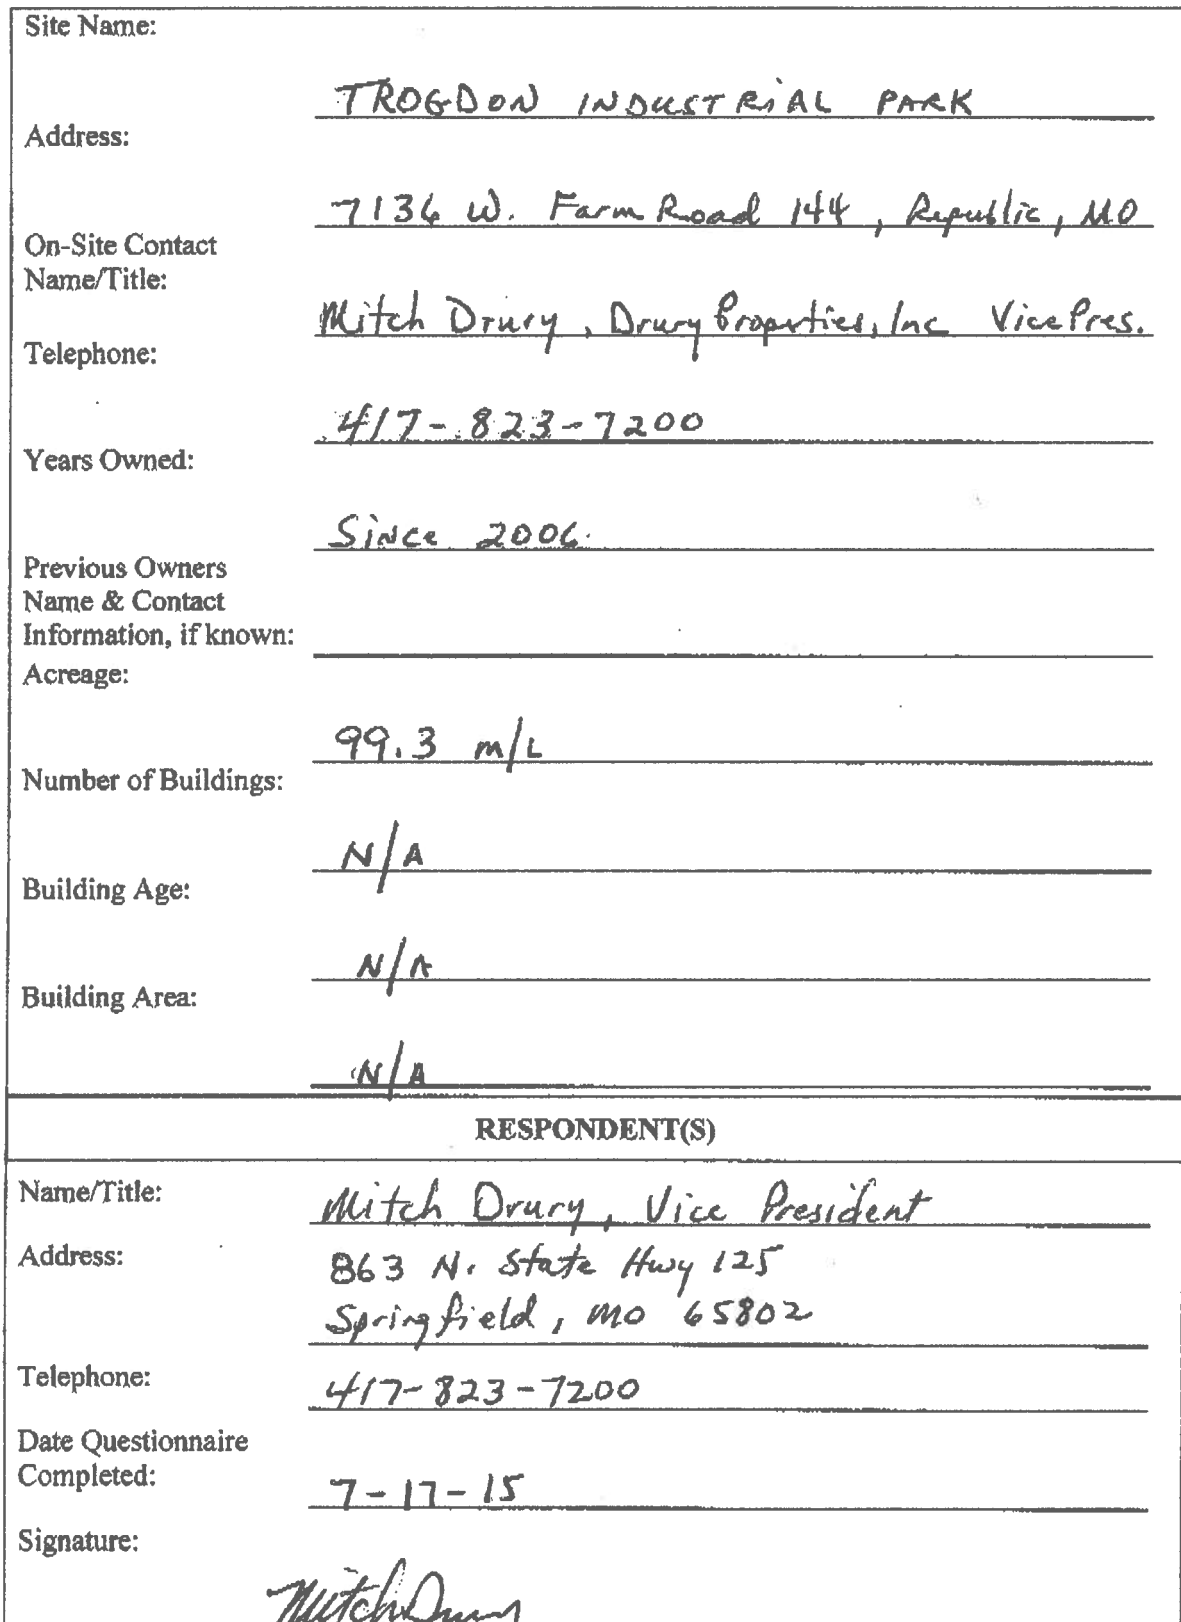 Site Name:
TROGDON INDUSTRIAL PARK
Address:
7136 W. Farm Road 144, Republic, MO
On-Site Contact
Name/Title:
Mitch Drury, Drury Properties, Inc Vice Pres.
Telephone:
417-823-7200
Years Owned:
Since 2006
Previous Owners
Name & Contact
Information, if known:
Acreage:
99.3 m/L
Number of Buildings:
N/A
Building Age:
N/A
Building Area:
N/A
RESPONDENT(S)
Name/Title: Mitch Drury, Vice President
Address: 863 N. State Hwy 125
Springfield, MO 65802
Telephone: 417-823-7200
Date Questionnaire
Completed: 7-17-15
Signature:
Mitch Drury